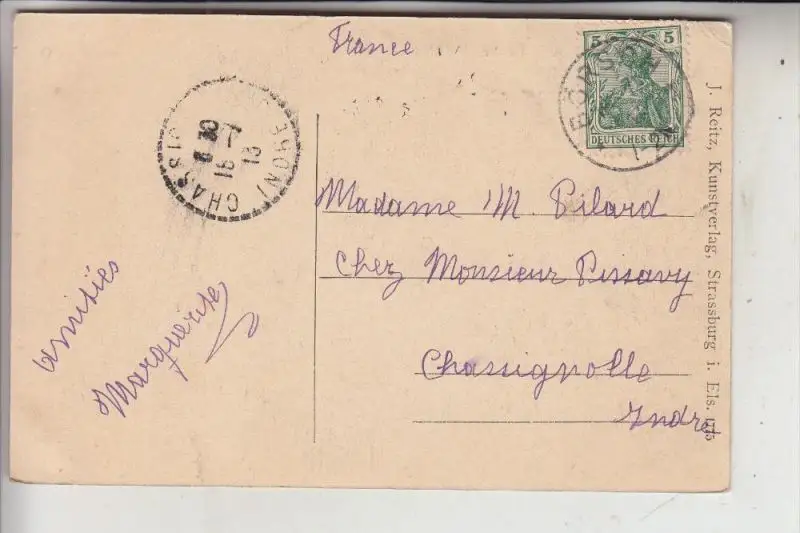 France
5 5
DEUTSCHES REICH
BÖRSCH
CHASS
18
13
Madame M. Pilard
Chez Monsieur Pissavy
Chassignolle
Indre
amitiés
Marguerite
J. Reitz, Kunstverlag, Strassburg i. Els. 1175